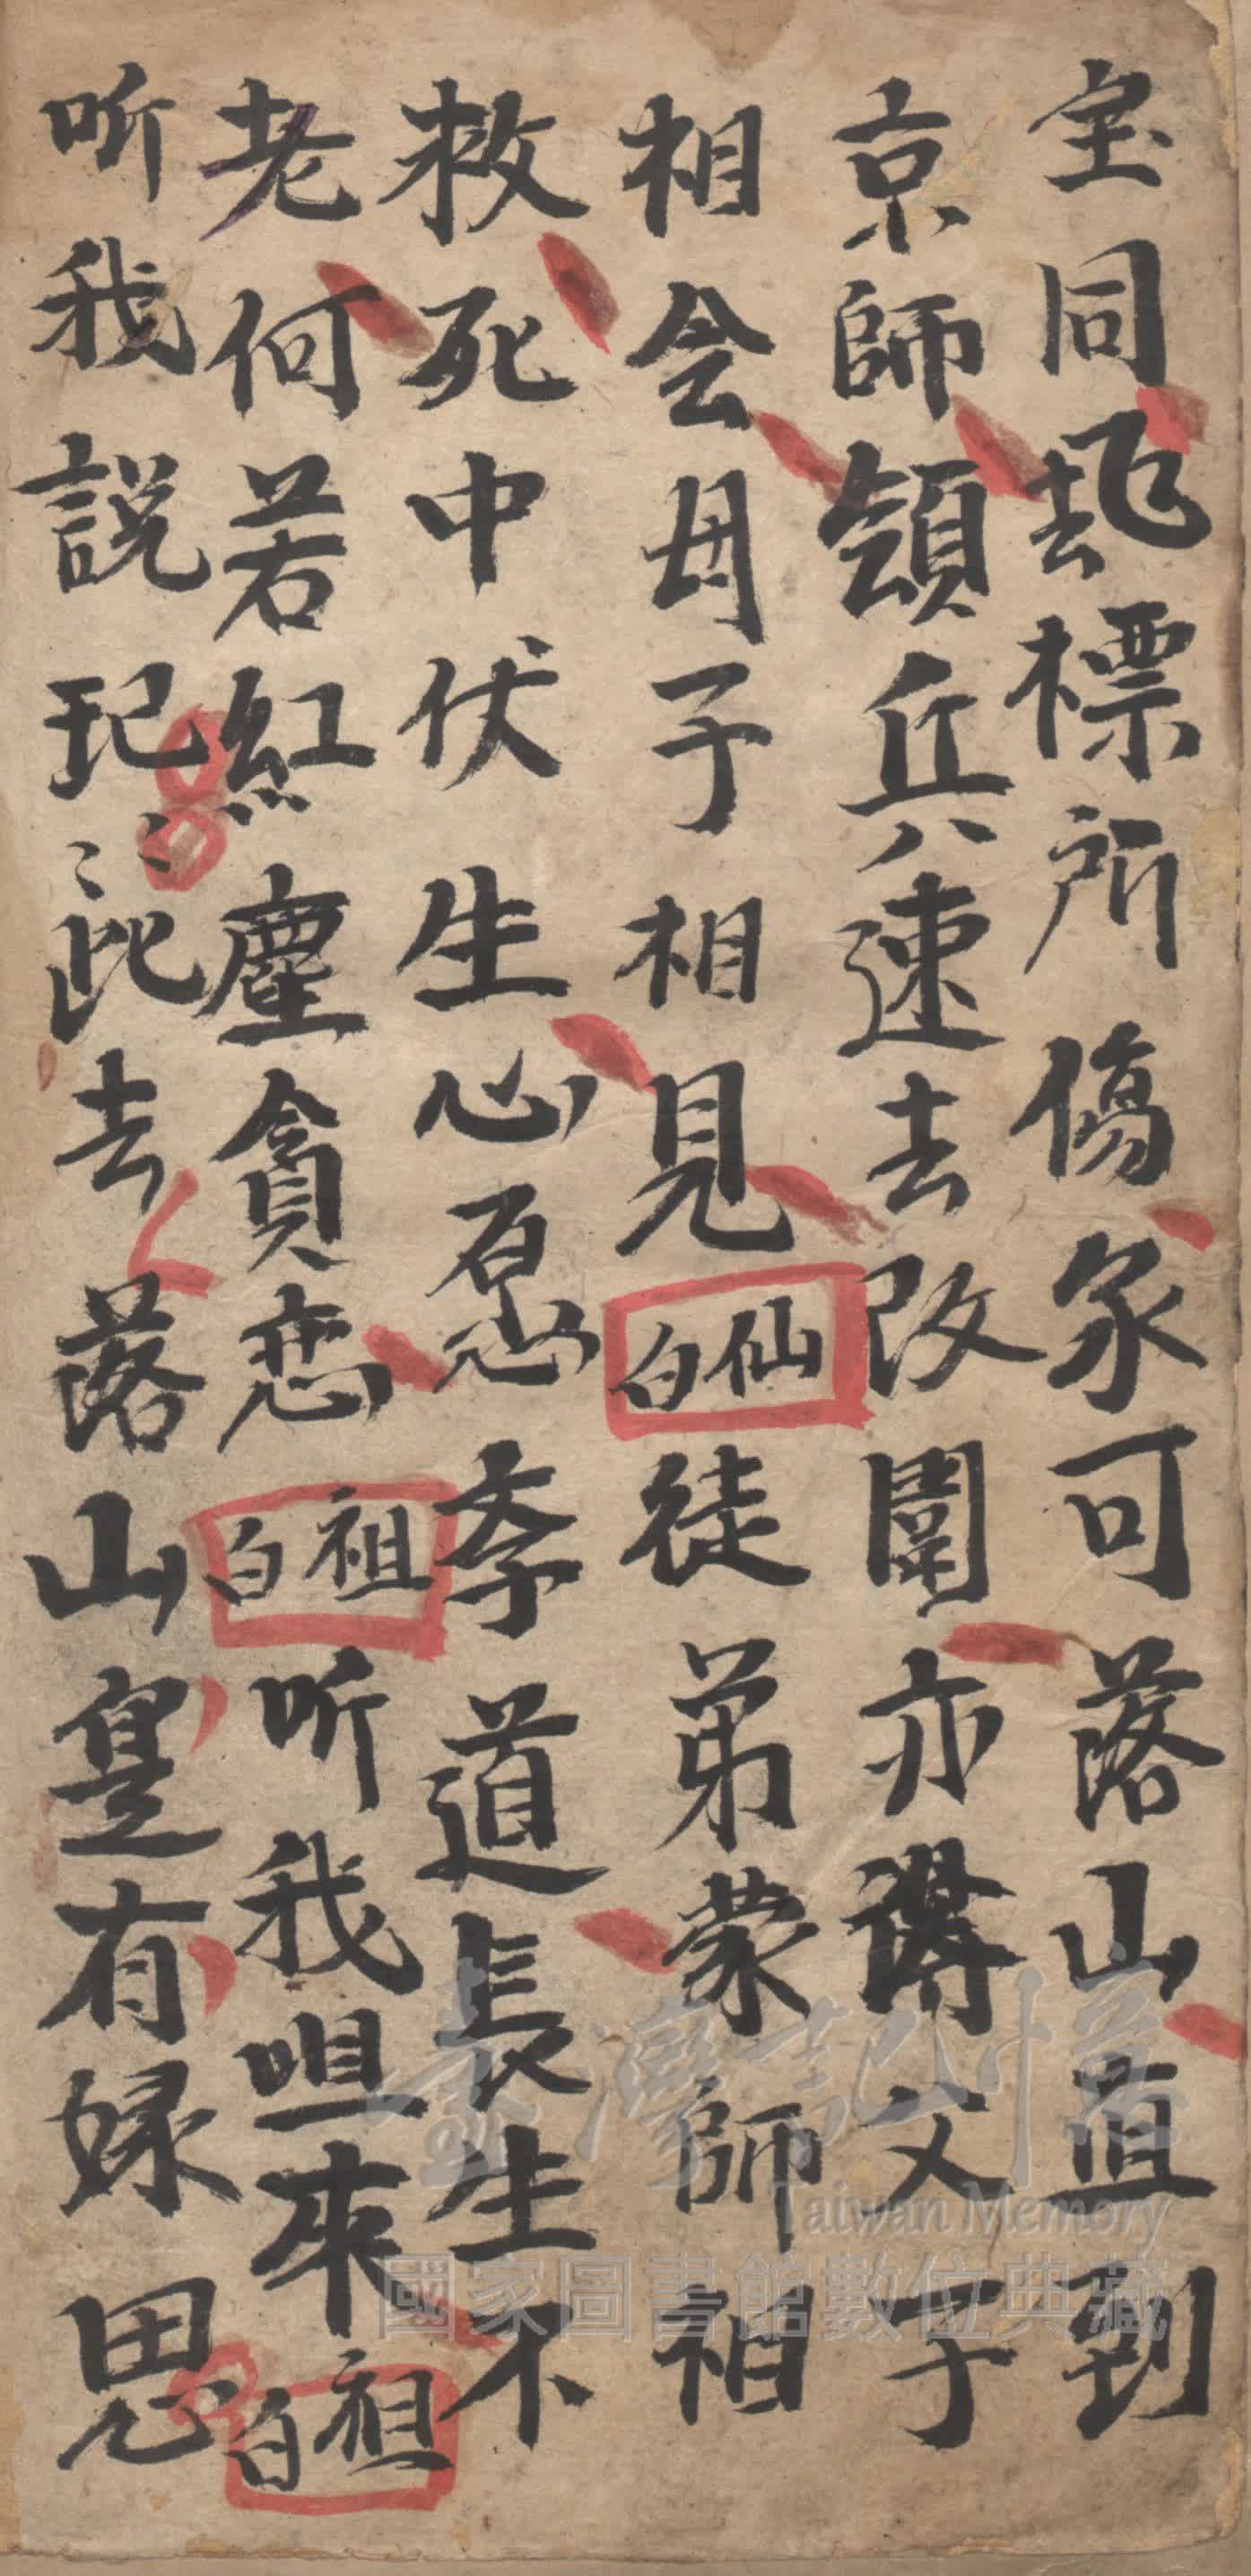 宝同飛標所傷尔可落山直到
京師領兵速去改圍亦得父子
相会母子相見仙白徒弟蒙師祖
救死中伏生心愿孝道長生不
老何若紅塵貪恋祖白听我咀來祖白
听我說
去落山寔有緣思
臺灣記憶
Taiwan Memory
國家圖書館數位典藏